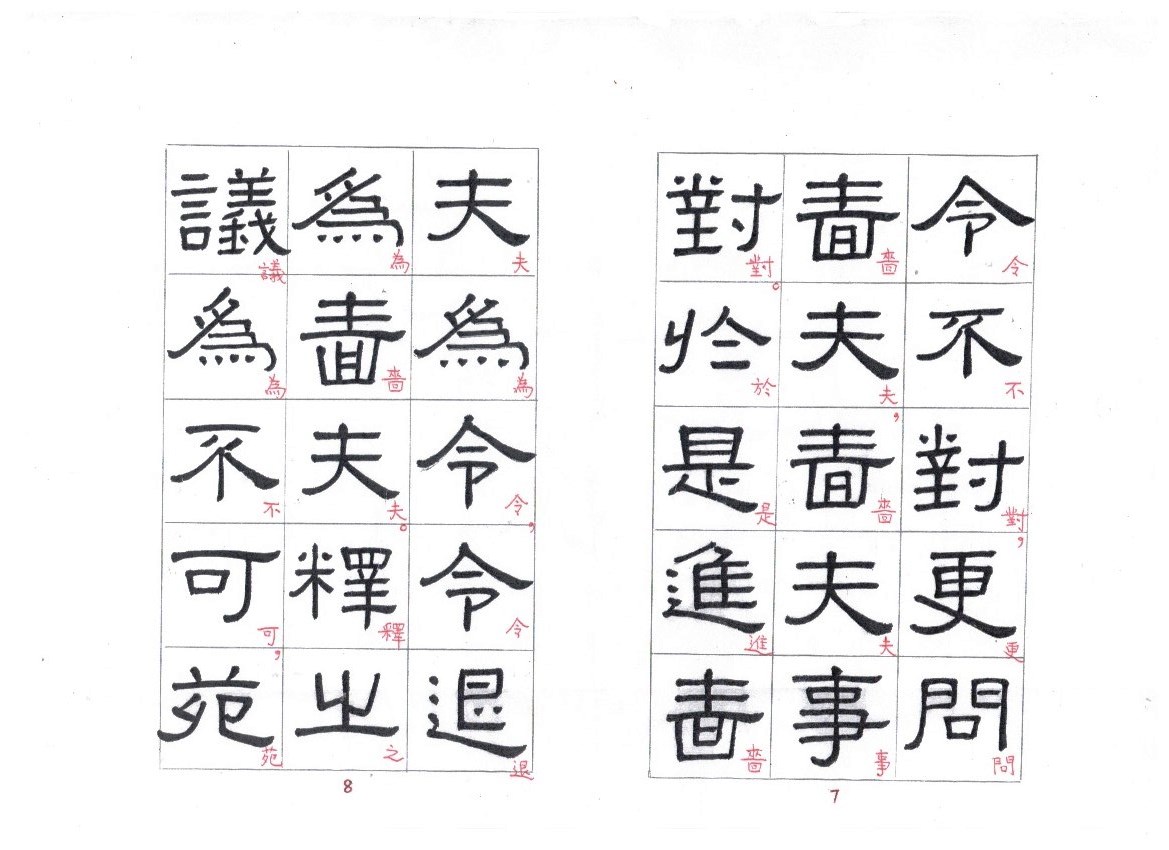 令不對更問
令不對，更問
嗇夫嗇夫事
嗇夫，嗇夫事
對於是進嗇
對。於是進嗇
7
夫爲令令退
夫為令，令退
爲嗇夫釋之
為嗇夫。釋之
議爲不可苑
議為不可，苑
8